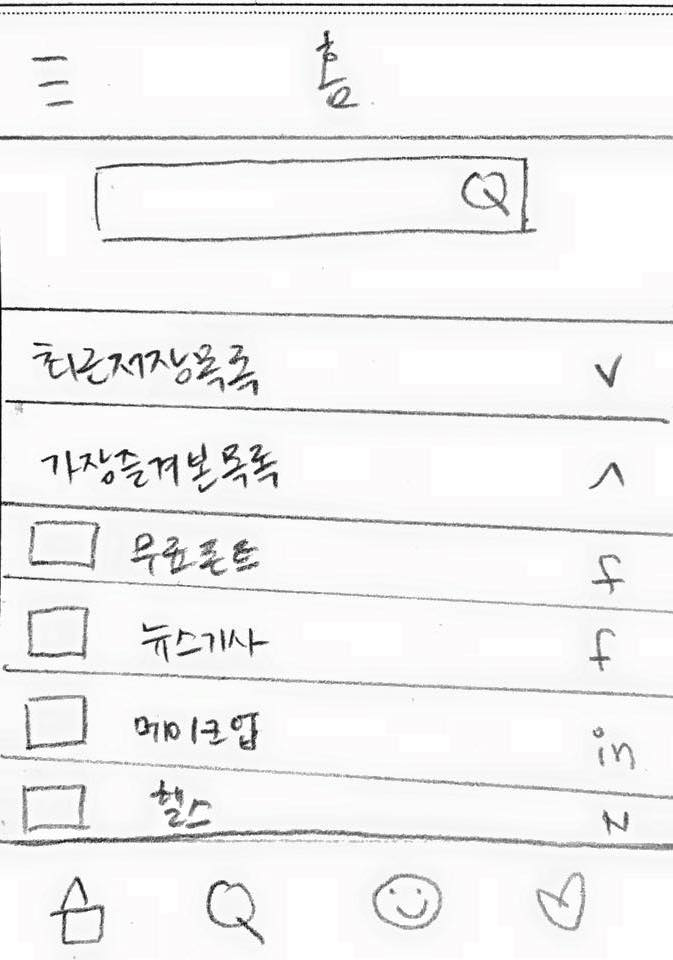 홈
최근저장목록
가장즐겨본목록
무료폰트 f
뉴스기사 f
메이크업 in
헬스 N